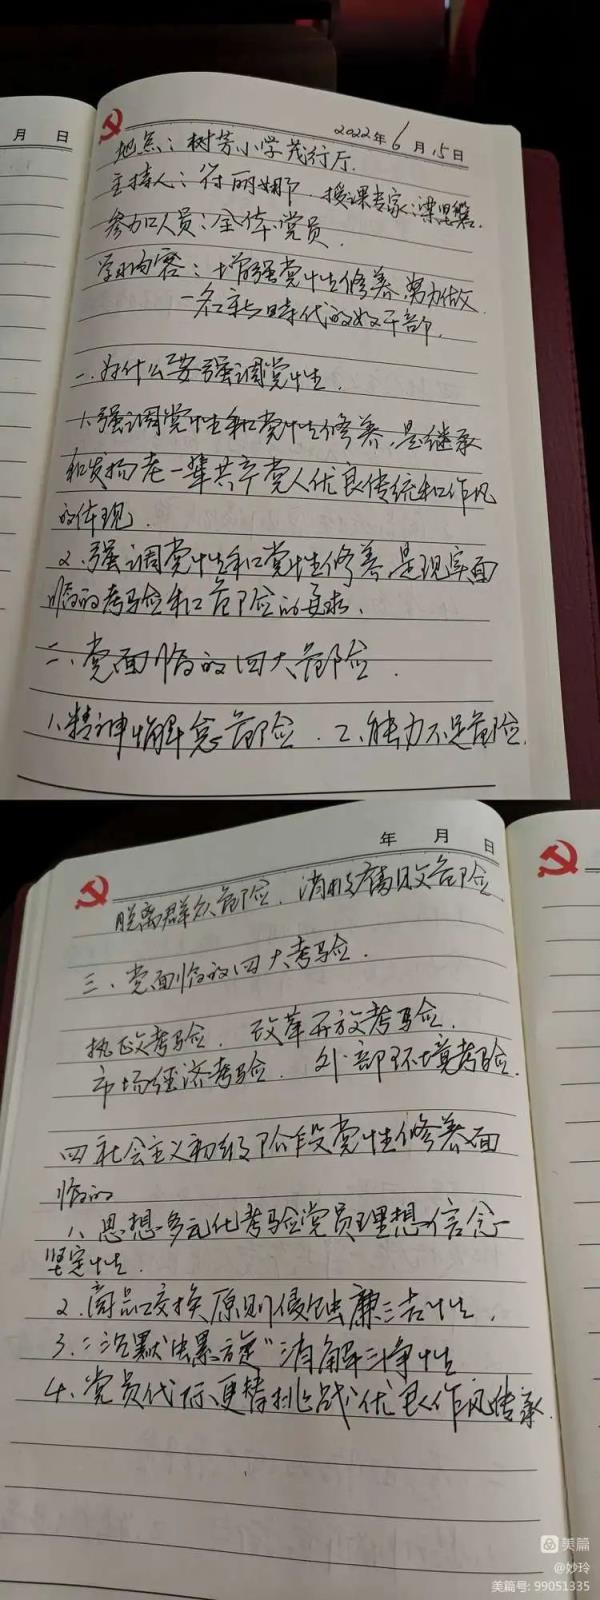 月 日
2022年6月15日
地点：树芳小学茂行厅.
主持人：符丽娜. 授课专家：梁
参加人员：全体党员.
学习内容：增强党性修养，努力做
一名新时代的好干部.
一. 为什么要强调党性.
1.强调党性和党性修养，是继承
和发扬老一辈共产党人优良传统和作风
的体现.
2.强调党性和党性修养，是现实面
临的考验和危险的要求.
二、党面临的四大危险.
1、精神懈怠危险. 2、能力不足危险.
年 月 日
脱离群众危险. 消极腐败危险
三、党面临的四大考验.
执政考验. 改革开放考验.
市场经济考验. 外部环境考验.
四社会主义初级阶段党性修养面
临的
1、思想多元化考验党员理想信念
坚定性.
2.商品交换原则侵蚀廉洁性.
3."沉默螺旋"消解斗争性
4、党员代际更替挑战优良作风传承.
美篇
@妙玲
美篇号: 99051335